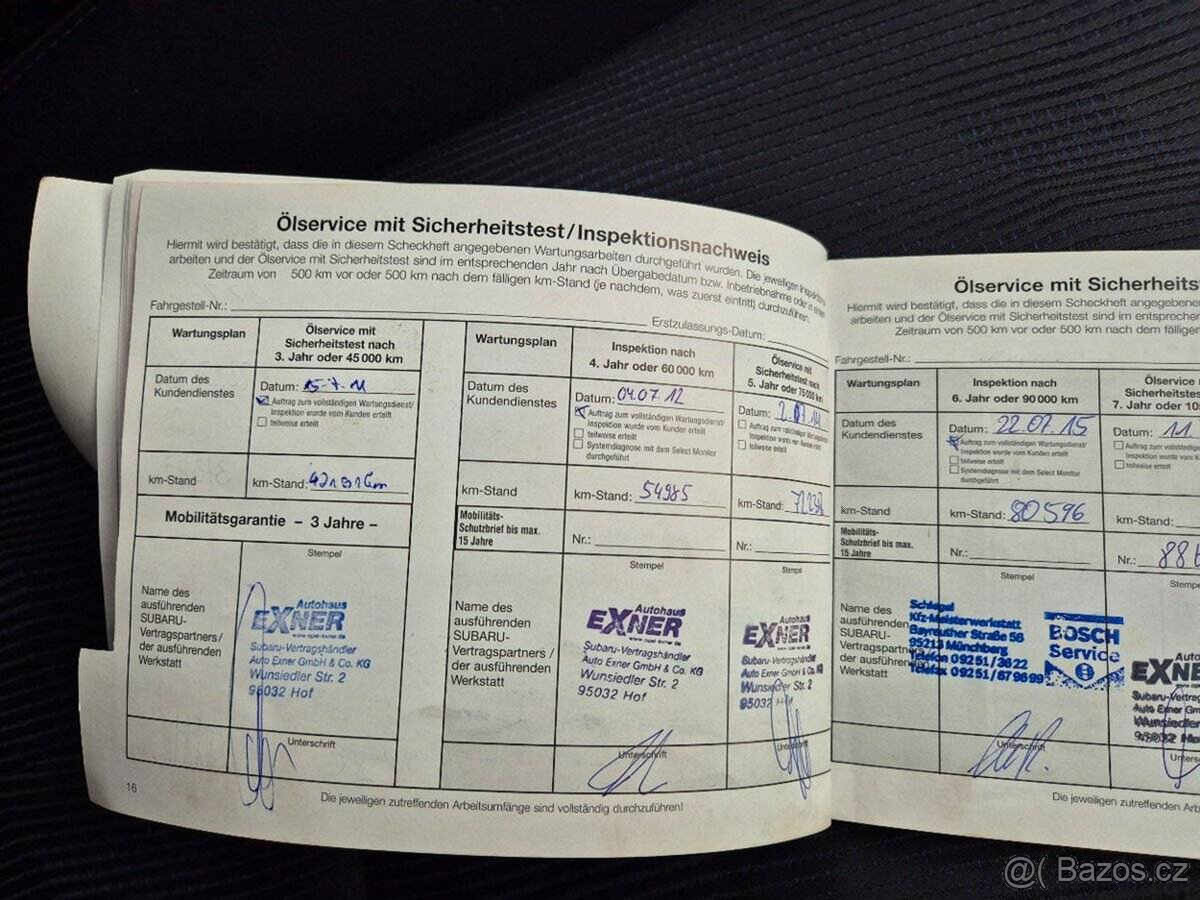 Ölservice mit Sicherheitstest/Inspektionsnachweis
Hiermit wird bestätigt, dass die in diesem Scheckheft angegebenen Wartungsarbeiten durchgeführt wurden. Die jeweiligen
arbeiten und der Ölservice mit Sicherheitstest sind im entsprechenden Jahr nach Übergabedatum bzw. Inbetriebnahme oder in einem
Zeitraum von 500 km vor oder 500 km nach dem fälligen km-Stand (je nachdem, was zuerst eintritt) durchzuführen.
Fahrgestell-Nr.:
Erstzulassungs-Datum:
Wartungsplan
Ölservice mit
Sicherheitstest nach
3. Jahr oder 45 000 km
Datum des
Kundendienstes
Datum: 15.7.11
Auftrag zum vollständigen Wartungsdienst/
Inspektion wurde vom Kunden erteilt
teilweise erteilt
km-Stand
km-Stand:
Mobilitätsgarantie – 3 Jahre –
Stempel
Name des
ausführenden
SUBARU-
Vertragspartners/
der ausführenden
Werkstatt
Autohaus
EXNER
Subaru-Vertragshändler
Auto Exner GmbH & Co. KG
Wunsiedler Str. 2
95032 Hof
Unterschrift
16
Wartungsplan
Inspektion nach
4. Jahr oder 60 000 km
Datum des
Kundendienstes
Datum: 04.07.12
Auftrag zum vollständigen Wartungsdienst/
Inspektion wurde vom Kunder erteilt
teilweise erteilt
Systemdiagnose mit dem Select Monitor
durchgeführt
km-Stand
km-Stand: 54985
Mobilitäts-
Schutzbrief bis max.
15 Jahre
Nr.:
Stempel
Name des
ausführenden
SUBARU-
Vertragspartners /
der ausführenden
Werkstatt
Autohaus
EXNER
Subaru-Vertragshändler
Auto Exner GmbH & Co. KG
Wunsiedler Str. 2
95032 Hof
Unterschrift
Ölservice mit
Sicherheitstest nach
5. Jahr oder 75 000 km
Datum:
Auftrag zum vollständigen Wartungsdienst/
Inspektion wurde vom Kunden erteilt
teilweise erteilt
km-Stand:
Nr.:
Stempel
Autohaus
EXNER
Subaru-Vertragshändler
Auto Exner GmbH & Co. KG
Wunsiedler Str. 2
95032 Hof
Unterschrift
Die jeweiligen zutreffenden Arbeitsumfänge sind vollständig durchzuführen!
Ölservice mit Sicherheits
Hiermit wird bestätigt, dass die in diesem Scheckheft angegebenen
arbeiten und der Ölservice mit Sicherheitstest sind im entsprechen
Zeitraum von 500 km vor oder 500 km nach dem fälligen
Fahrgestell-Nr.:
Wartungsplan
Inspektion nach
6. Jahr oder 90 000 km
Datum des
Kundendienstes
Datum: 22.07.15
Auftrag zum vollständigen Wartungsdienst/
Inspektion wurde vom Kunden erteilt
teilweise erteilt
Systemdiagnose mit dem Select Monitor
durchgeführt
km-Stand
km-Stand: 80596
Mobilitäts-
Schutzbrief bis max.
15 Jahre
Nr.:
Stempel
Name des
ausführenden
SUBARU-
Vertragspartners/
der ausführenden
Werkstatt
Schlegel
Kfz-Meisterwerkstatt
Bayreuther Straße 56
95213 Münchberg
Telefon 09251/3622
Telefax 09251/879699
BOSCH
Service
Unterschrift
Ölservice
Sicherheitstes
7. Jahr oder 10
Datum: 11.
Auftrag zum vollständigen
Inspektion wurde vom K
teilweise erteilt
km-Stand:
Nr.:
Stempe
EXNE
Subaru-Vertrag
Auto Exner Gm
Wunsiedler
95032 Ho
Unters
Die jeweiligen zutreffenden Arb
@( Bazos.cz